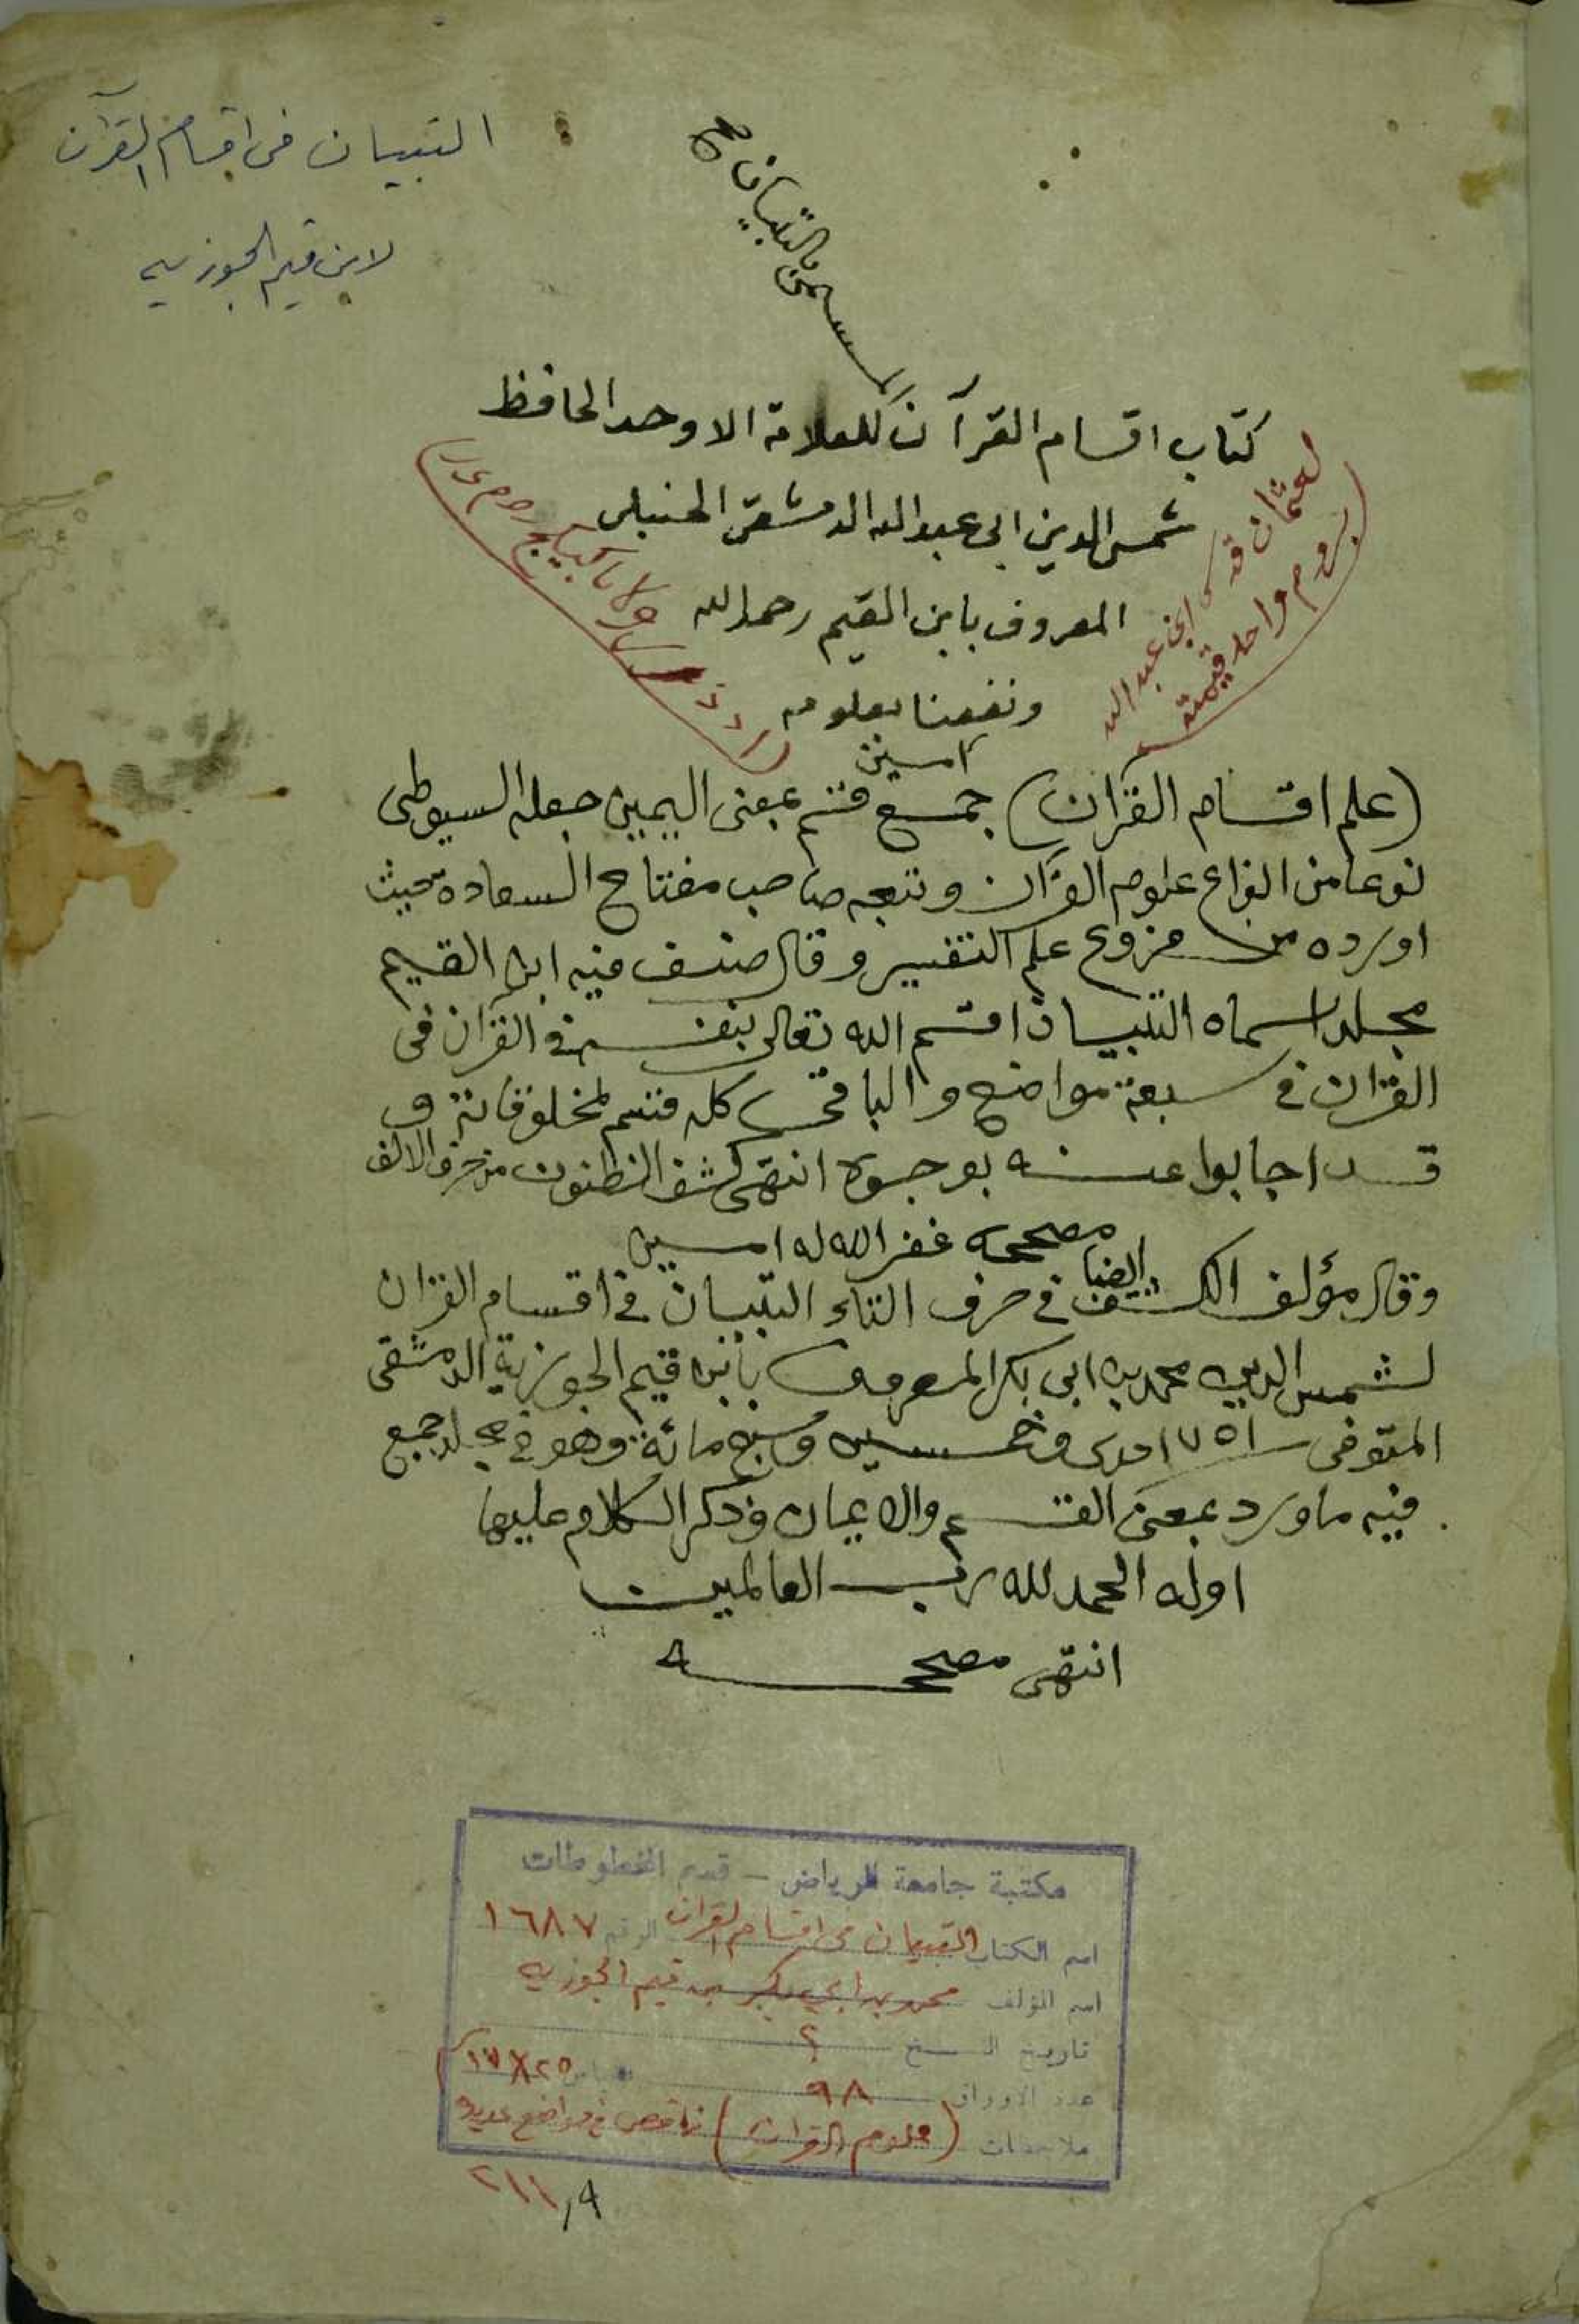 التبيان فى اقسام القرآن
لابن قيم الجوزيه
المسمى بالتبيان صح
كتاب اقسام القرآن للعلامة الاوحد الحافظ
شمس الدين ابى عبد الله الدمشقى الحنبلى
المعروف بابن القيم رحمه الله
ونفعنا بعلومه
امسين
لعثمان ابن عبد الله
واحد قيمته
(علم اقسام القران) جمع قسم بمعنى اليمين جعله السيوطى
نوعا من انواع علوم القران وتبعه صاحب مفتاح السعاده حيث
اورده من فروع علم التفسير وقال صنف فيه ابن القيم
مجلدا سماه التبيان اقسم الله تعالى بنفسه فى القران فى
القران فى سبعة مواضع والباقى كله قسم لمخلوقاته و
قد اجابوا عنه بوجوه انتهى كشف الظنون من حرف الالف
مصححه غفر الله له امسين
وقال مؤلف الكشف ايضا فى حرف التاء التبيان فى اقسام القران
لشمس الدين محمد بن ابى بكر المعروف بابن قيم الجوزية الدمشقى
المتوفى ٧٥١ احدى وخمسين وسبع مائة وهو فى مجلد جمع
فيه ما ورد بمعنى القسم والايمان وذكر الكلام عليها
اوله الحمد لله رب العالمين
انتهى مصححه
مكتبة جامعة الرياض - قسم المخطوطات
اسم الكتاب التبيان فى اقسام القران الرقم ١٦٨٧
اسم المؤلف محمد بن ابى بكر بن قيم الجوزيه
تاريخ النسخ ؟
عدد الاوراق ٩٨ ١٧X٢٥
ملاحظات (علوم القران) ناقص فى مواضع عديده
٢١١,٩